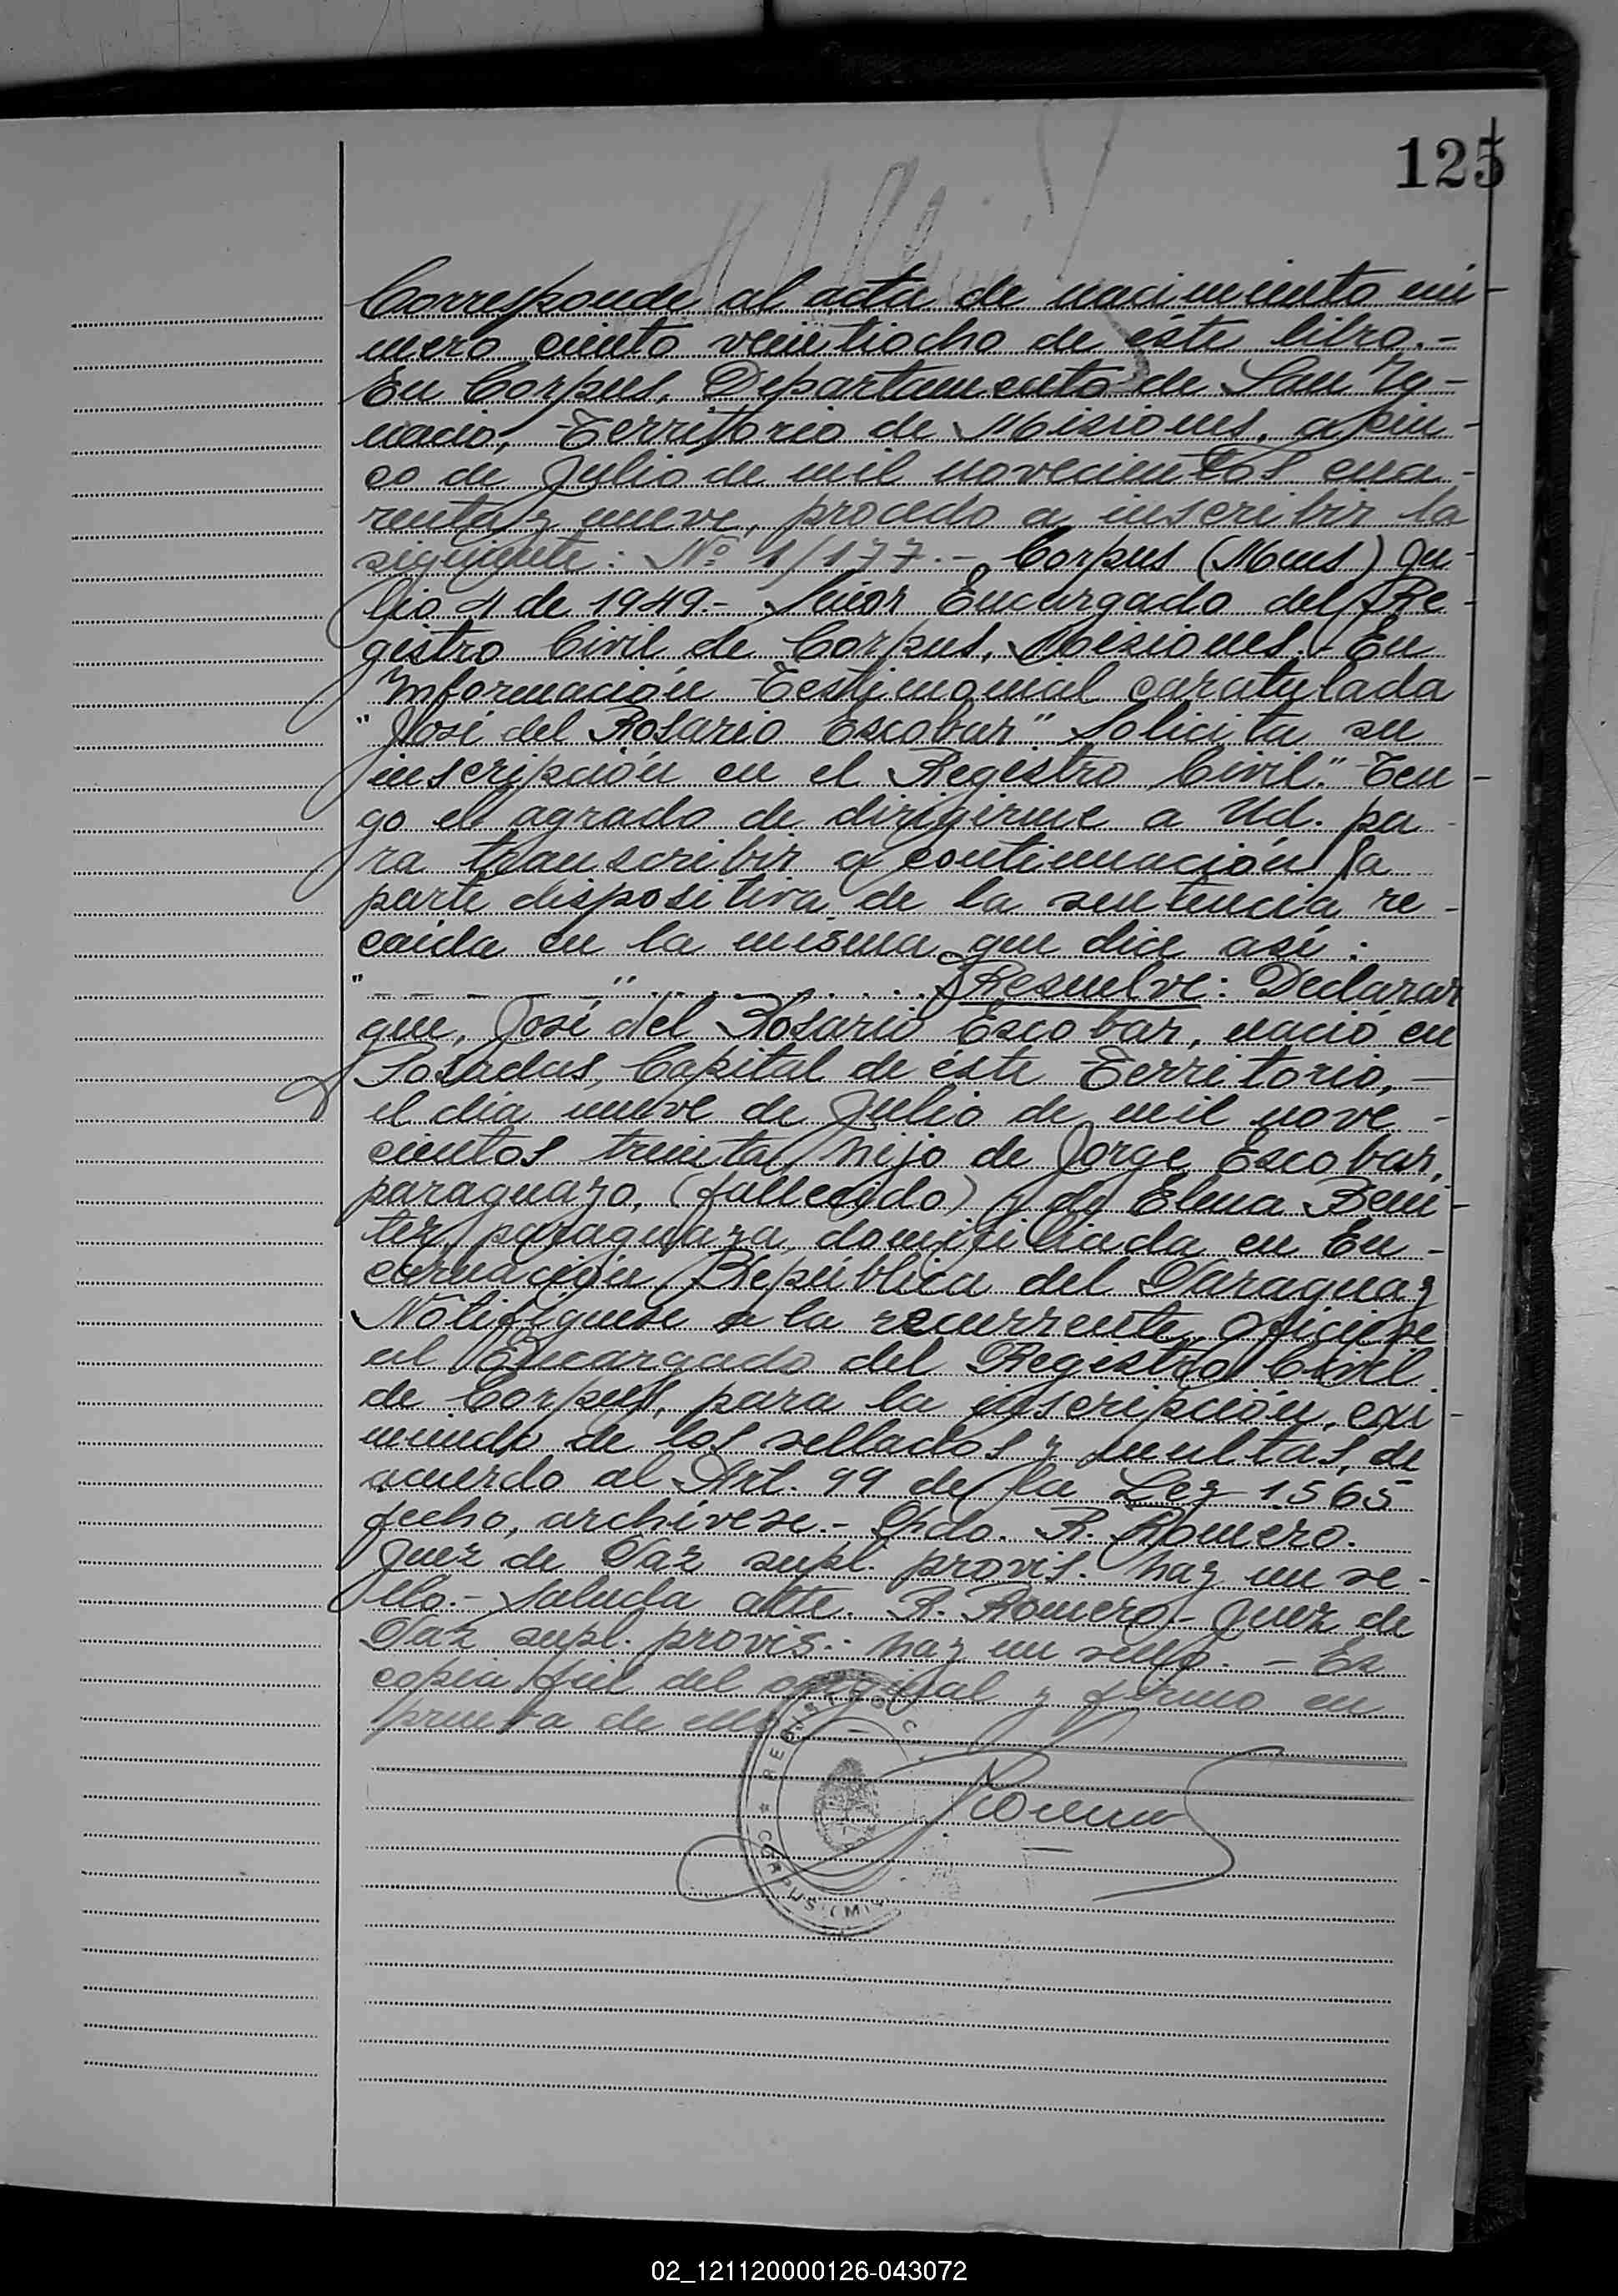 125
Corresponde al acta de nacimiento nú-
mero ciento veintiocho de éste libro.-
En Corpus, Departamento de San Ig-
nacio, Territorio de Misiones, a cin-
co de Julio de mil novecientos cua-
renta y nueve, procedo a inscribir la
siguiente: Nº 1/177.- Corpus (Mnes) Ju-
lio 4 de 1949.- Señor Encargado del Re-
gistro Civil de Corpus, Misiones. En
Información Testimonial caratulada
"José del Rosario Escobar" Solicita su
inscripción en el Registro Civil". Ten-
go el agrado de dirigirme a Ud. pa-
ra transcribir a continuación la
parte dispositiva de la sentencia re-
caída en la misma que dice así:
"- - - - -" . . . . . . . Resuelve: Declarar
que, José del Rosario Escobar, nació en
Posadas, Capital de éste Territorio, -
el día nueve de Julio de mil nove-
cientos treinta, hijo de Jorge Escobar,
paraguayo, (fallecido) y de Elena Beni-
tez, paraguaya, domiciliada en En-
carnación, República del Paraguay
Notifíquese a la recurrente, ofíciese
al Encargado del Registro Civil
de Corpus, para la inscripción, exi-
miendo de los sellados y multas, de
acuerdo al Art. 99 de la Ley 1565
fecho, archívese.- Fdo. R. Romero.
Juez de Paz supl. provis. hay un se-
llo.- Saluda atte. R. Romero- Juez de
Paz supl. provis.- hay un sello. - Es
copia fiel del original y firmo en
prueba de ello
REGISTRO C
CORPUS (MIS
Romero
02_121120000126-043072